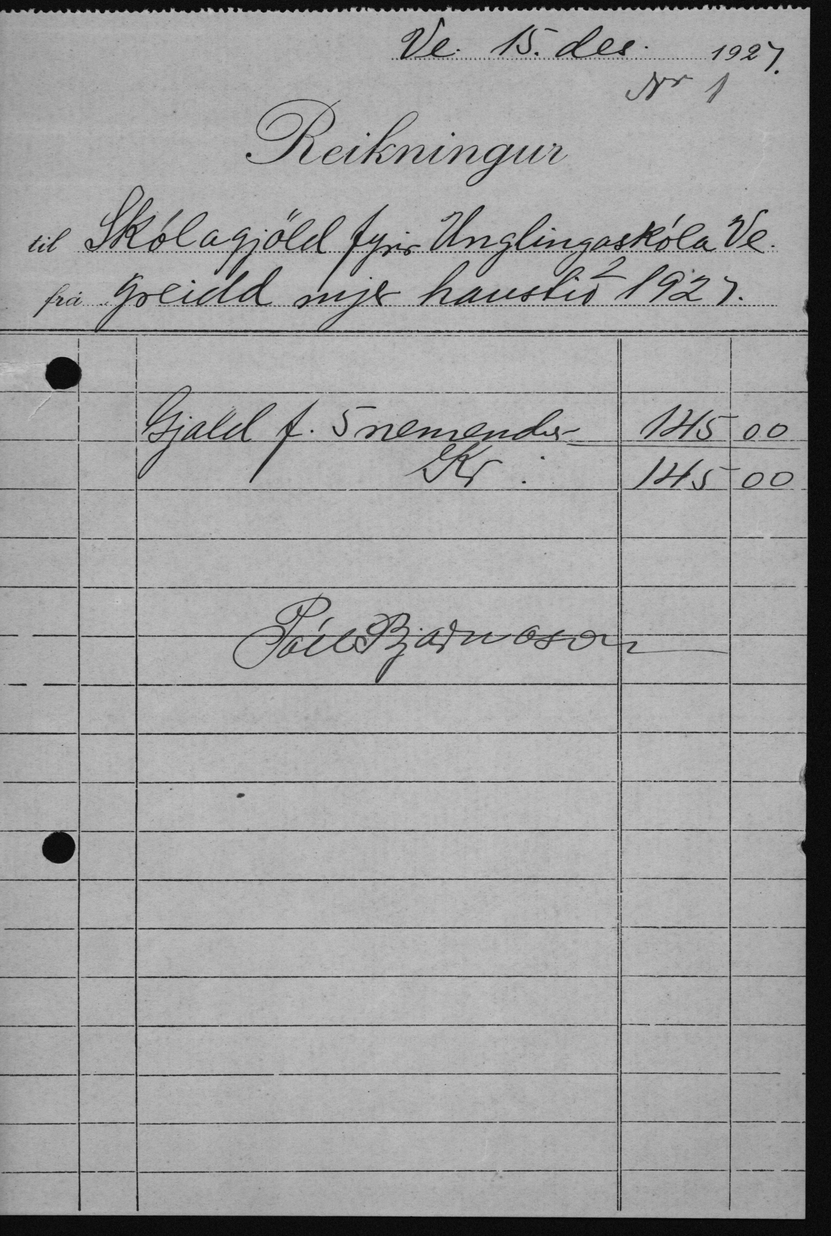 Ve. 15. des. 1927.
Nr 1
Reikningur
til Skólagjöld fyrir Unglingaskóla Ve.
frá greidd mjer haustið 1927.
Gjald f. 5 nemendur 145 00
Kr: 145 00
Páll Bjarnason